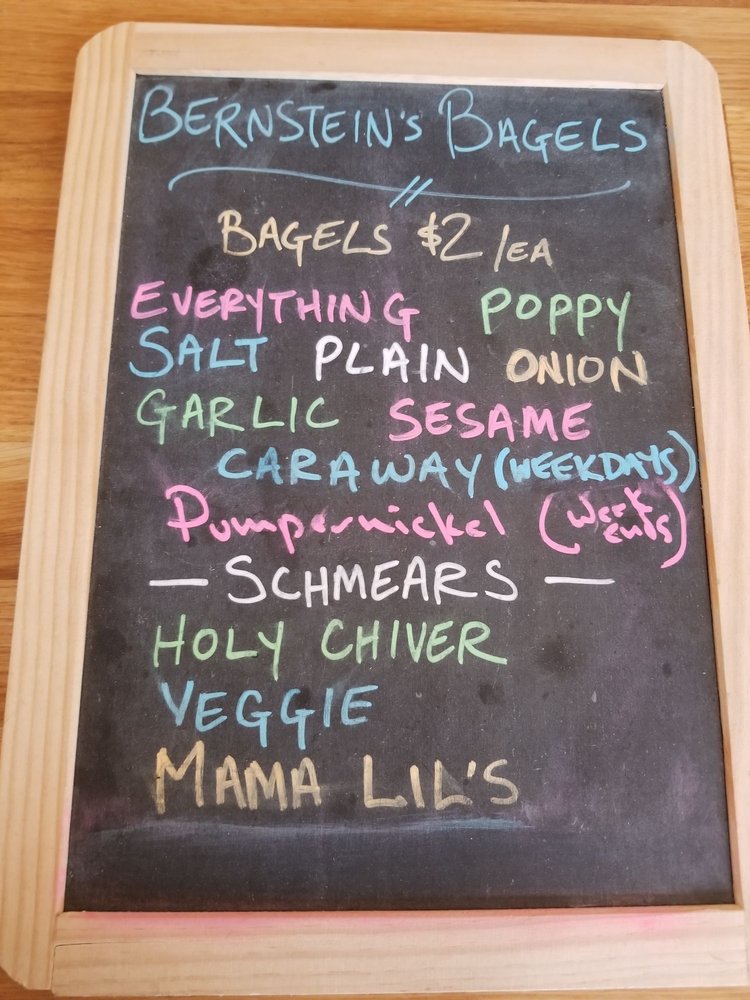 BERNSTEIN'S BAGELS
BAGELS $2/EA
EVERYTHING POPPY
SALT PLAIN ONION
GARLIC SESAME
CARAWAY (WEEKDAYS)
Pumpernickel (week
ends)
— SCHMEARS —
HOLY CHIVER
VEGGIE
MAMA LIL'S